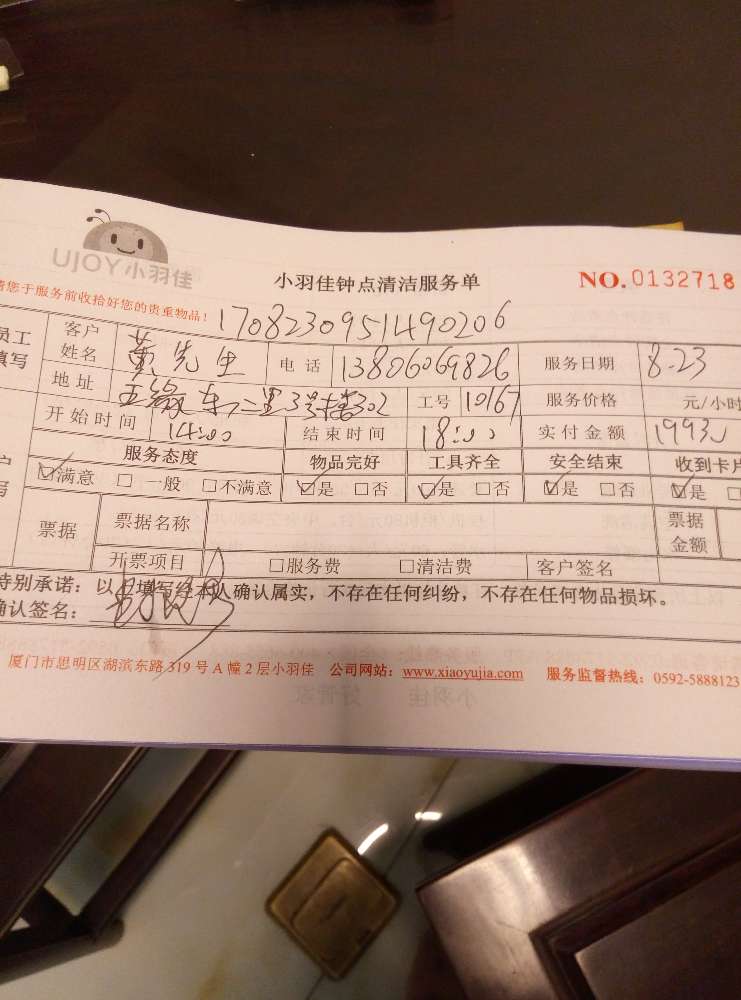 UJOY小羽佳
小羽佳钟点清洁服务单
NO.0132718
请您于服务前收拾好您的贵重物品！
1708230951490206
员工 填写
客户 姓名 黄先生 电话 13806069826 服务日期 8.23
地址 五缘东二里3号楼302 工号 10167 服务价格 元/小时
开始时间 14:00 结束时间 18:00 实付金额
服务态度 物品完好 工具齐全 安全结束 收到卡片
☑满意 □一般 □不满意 ☑是 □否 ☑是 □否 ☑是 □否 ☑是 □
票据 票据名称 票据 金额
开票项目 □服务费 □清洁费 客户签名
特别承诺：以 填写经本人确认属实，不存在任何纠纷，不存在任何物品损坏。
确认签名：
厦门市思明区湖滨东路319号A幢2层小羽佳 公司网站：www.xiaoyujia.com 服务监督热线：0592-5888123